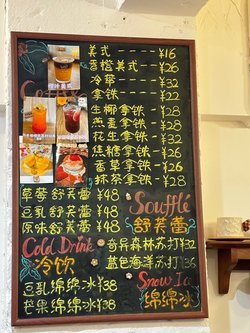 Coffee
美式 ---- ¥16
香橙美式 -- ¥26
冷萃 ---- ¥32
拿铁 ---- ¥22
生椰拿铁 - ¥28
燕麦拿铁 - ¥28
花生拿铁 - ¥32
焦糖拿铁 - ¥26
香草拿铁 - ¥26
抹茶拿铁 - ¥28
草莓舒芙蕾 ¥48
豆乳舒芙蕾 ¥48
原味舒芙蕾 ¥48
Souffle
舒芙蕾
Cold Drink
冷饮
奇异森林苏打 ¥32
蓝色海洋苏打 ¥36
豆乳绵绵冰 ¥38
绵绵冰 ¥38
Snow Ice
绵绵冰